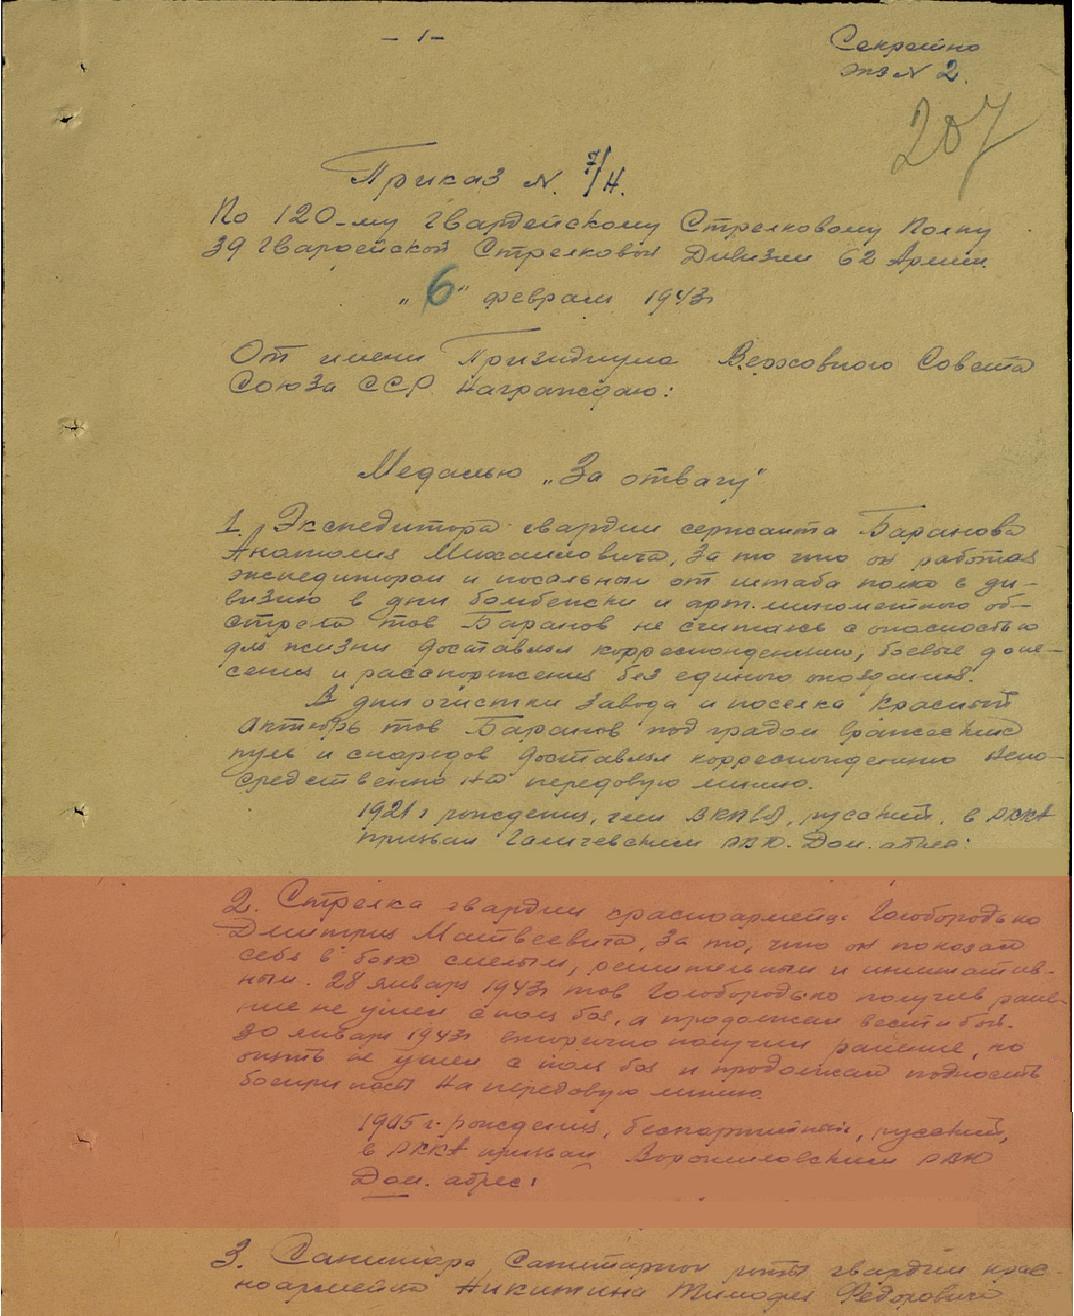 - 1 -
Секретно
экз N 2.
207
Приказ N. 7/Н.
По 120-му Гвардейскому Стрелковому Полку
39 Гвардейской Стрелковой Дивизии 62 Армии.
"6" февраля 1943г
От имени Призидиума Верховного Совета
Союза ССР награждаю:
Медалью "За отвагу"
1. Экспедитора гвардии сержанта Баранова
Анатолия Михайловича, за то что он работая
экспедитором и посыльным от штаба полка в ди-
визию в дни бомбежки и арт. минометного об-
стрела тов Баранов не считаясь с опасностью
для жизни доставлял корреспонденцию, боевые доне-
сения и распоряжения без единого опоздания.
В дни очистки завода и поселка Красный
Октябрь тов Баранов под градом вражеских
пуль и снарядов доставлял корреспонденцию непо-
средственно на передовую линию.
1921 г рождения, член ВКП(б), русский, в РККА
призван Галичевским РВК. Дом. адрес:
2. Стрелка гвардии красноармейца Голобородько
Дмитрия Матвеевича, за то, что он показал
себя в боях смелым, решительным и инициатив-
ным. 28 января 1943г тов Голобородько получив ране-
ние не ушел с поля боя, а продолжал вести бой.
30 января 1943г вторично получил ранение, но
опять не ушел с поля боя и продолжал подносить
боеприпасы на передовую линию.
1905 г. рождения, беспартийный, русский,
в РККА призван Ворошиловским РВК
Дом. адрес:
3. Санитара санитарной роты гвардии крас-
ноармейца Никитина Тимофея Федоровича